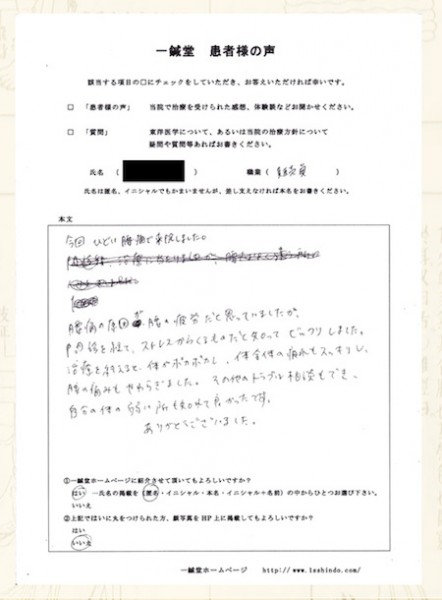 一鍼堂 患者様の声
該当する項目の□にチェックをしていただき、お答えいただければ幸いです。
□ 「患者様の声」 当院で治療を受けられた感想、体験談などお聞かせください。
□ 「質問」 東洋医学について、あるいは当院の治療方針について
疑問や質問等あればお書きください。
氏名 ( ) 職業 ( )
氏名は匿名、イニシャルでもかまいませんが、差し支えなければ本名をお書きください。
本文
今回 ひどい腰痛で来院しました。
腰痛の原因が腰の疲労だと思っていましたが、
問診を経て、ストレスからくるものだと知って ビックリしました。
治療を終えると、体がポカポカし、体全体の痛みもスッキリし、
腰の痛みもやわらぎました。その他のトラブルも相談もでき、
自分の体の弱い所も知れて良かったです。
ありがとうございました。
①一鍼堂ホームページに紹介させて頂いてもよろしいですか？
はい →氏名の掲載を（匿名・イニシャル・本名・イニシャル＋名前）の中からひとつお選び下さい。
いいえ
②上記ではいに丸をつけられた方、顔写真をHP上に掲載してもよろしいですか？
はい
いいえ
一鍼堂ホームページ http://www.1sshindo.com/